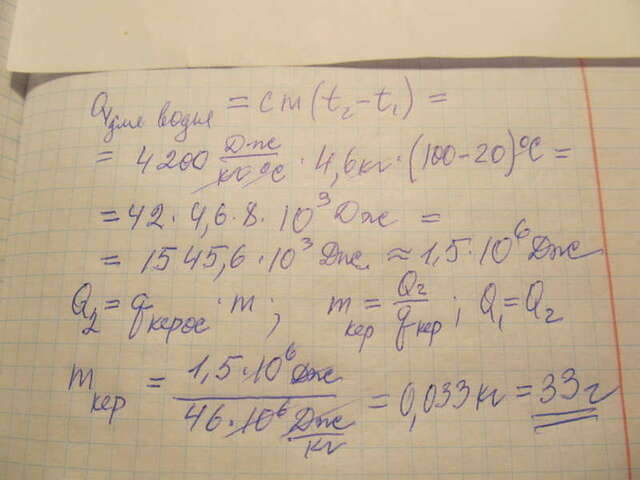 Q₁ для воды = cm(t₂-t₁) =
= 4200 Дж/кг°С · 4,6кг · (100-20)°С =
= 42 · 4,6 · 8 · 10³ Дж =
= 1545,6 · 10³ Дж ≈ 1,5 · 10⁶ Дж
Q₂ = qкерос · m; mкер = Q₂/qкер; Q₁ = Q₂
mкер = 1,5·10⁶ Дж / 46·10⁶ Дж/кг = 0,033 кг = 33г